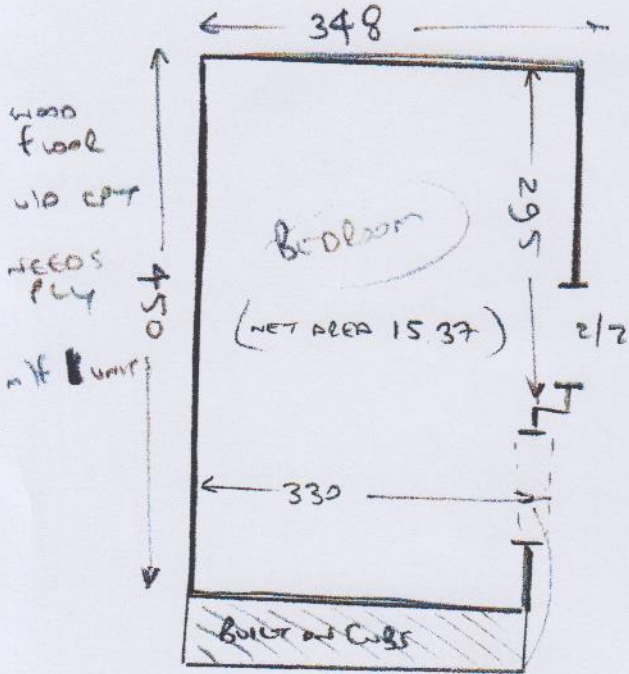 348
WOOD
FLOOR
U/D CPT
NEEDS
PLY
M/F UNITS
450
295
BEDROOM
(NET AREA 15.37)
2/2
330
BUILT ON CUBS